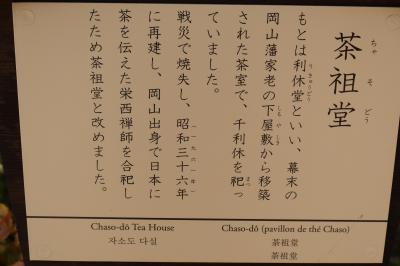 茶祖堂
ちゃ そ どう
もとは利休堂といい、幕末の
りきゅうどう
岡山藩家老の下屋敷から移築
しも やしき
された茶室で、千利休を祀っ
まつ
ていました。
戦災で焼失し、昭和三十六年
(一九六一年)
に再建し、岡山出身で日本に
茶を伝えた栄西禅師を合祀し
たため茶祖堂と改めました。
Chaso-dō Tea House
자소도 다실
Chaso-dō (pavillon de thé Chaso)
茶祖堂
茶祖堂